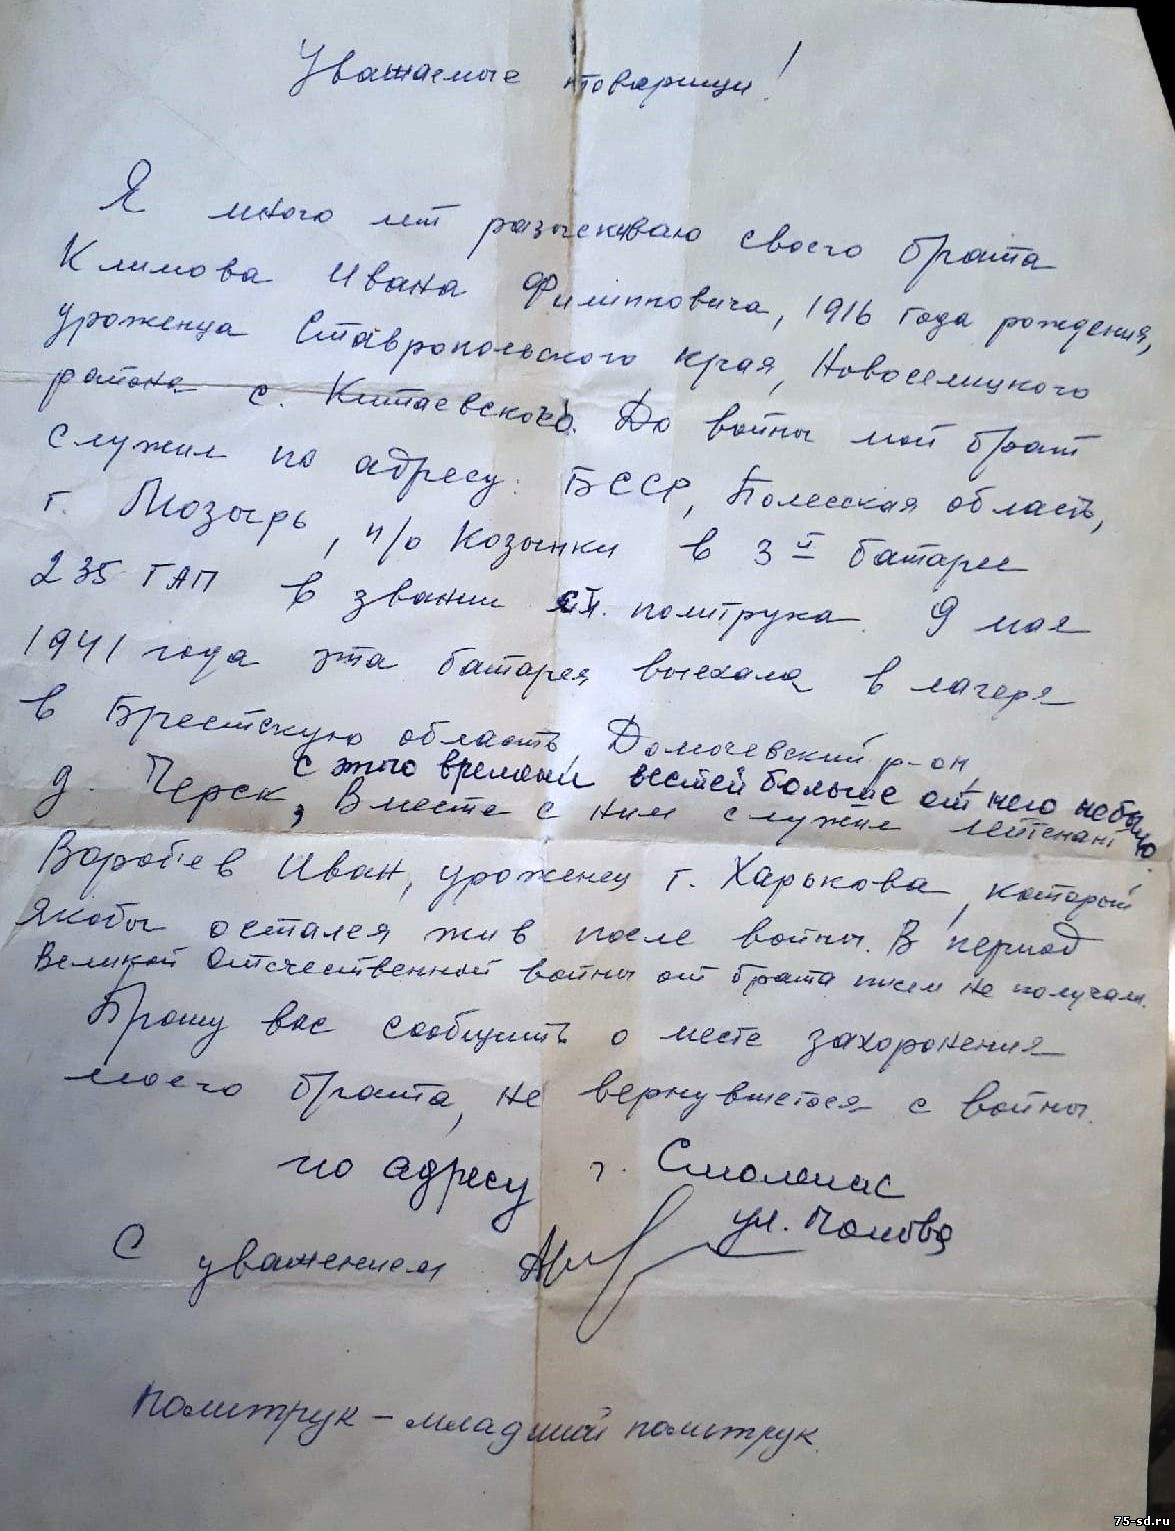 Уважаемые товарищи!
Я много лет разыскиваю своего брата
Климова Ивана Филипповича, 1916 года рождения,
уроженца Ставропольского края, Новоселицкого
района с. Китаевского. До войны мой брат
служил по адресу: БССР, Полесская область,
г. Мозырь, п/о Козынки в 3й батарее
235 ГАП в звании политрука. 9 мая
1941 года эта батарея выехала в лагеря
в Брестскую область, Домачевский р-он,
с этого времени вестей больше от него не было.
д. Черск, Вместе с ним служил лейтенант
Воробьев Иван, уроженец г. Харькова, который
якобы остался жив после войны. В период
Великой Отечественной войны от брата писем не получали.
Прошу вас сообщить о месте захоронения
моего брата, не вернувшегося с войны.
по адресу г. Смоленск
ул. Попова
С уважением
Политрук – младший политрук.
75-sd.ru